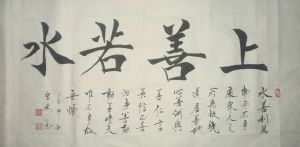 上善若水
水善利萬
物而不争
處衆人之
所惡故幾
道居善地
心善淵與
善仁言
善信正
治事善能
動善時夫
唯不争故